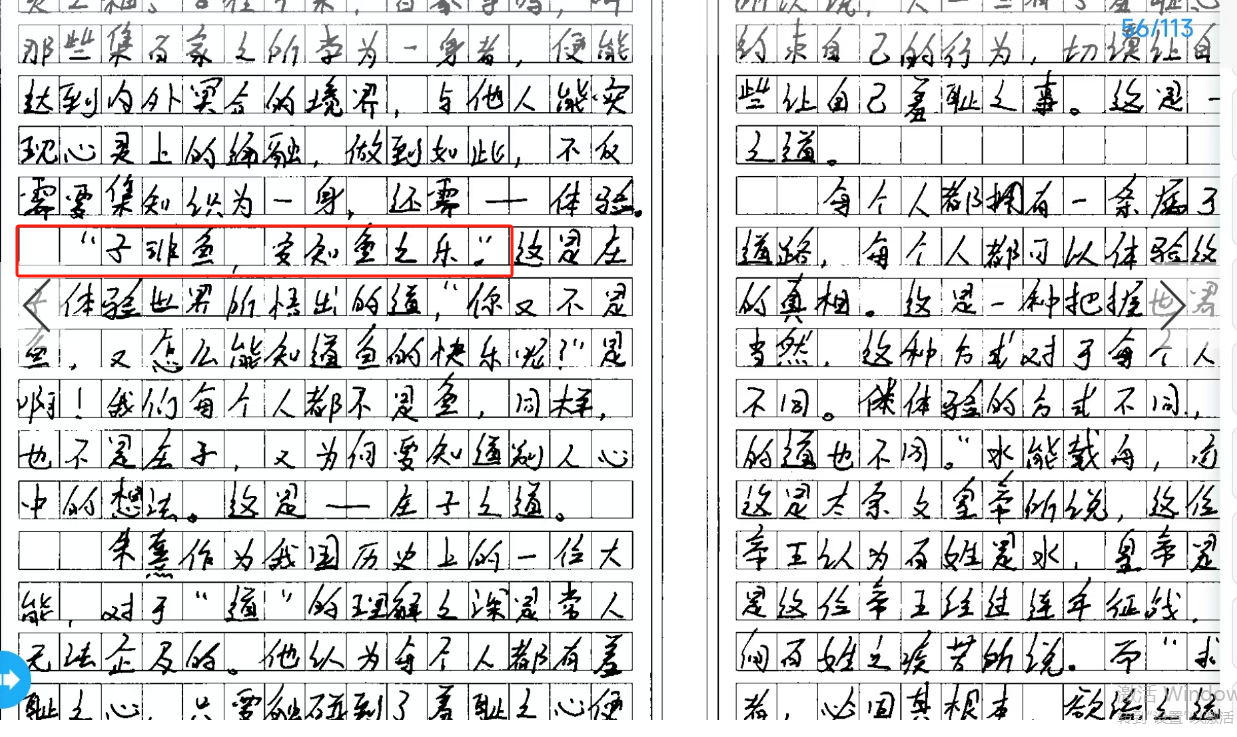 那些集百家之所学为一身者，便能
达到内外契合的境界，与他人能实
现心灵上的，做到如此，不仅
需要集知识为一身，还需——体验。
“子非鱼，安知鱼之乐。”这是在
体验世界所悟出的道“你又不是
鱼，又怎么能知道鱼的快乐呢？”是
啊！我们每个人都不是鱼，同样，
也不是庄子，又为何要知道别人心
中的想法。这是——庄子之道。
朱熹作为我国历史上的一位大
能，对于“道”的理解之深是常人
无法企及的。他认为每个人都有羞
耻之心，只要触碰到了羞耻之心便
56/113
约束自己的行为，切误让自
些让自己羞耻之事。这是一
之道。
每个人都拥有一条属于
道路，每个人都可以体验这
的真相。这是一种把握世界
当然，这种方式对于每个人
不同。体验的方式不同，
的道也不同。“水能载舟，
这是太宗文皇帝所说，这位
帝王认为百姓是水，皇帝是
是这位帝王经过连年征战，
百姓之疾苦所说。而“求
者，必固其根本，欲流之
激活 Window